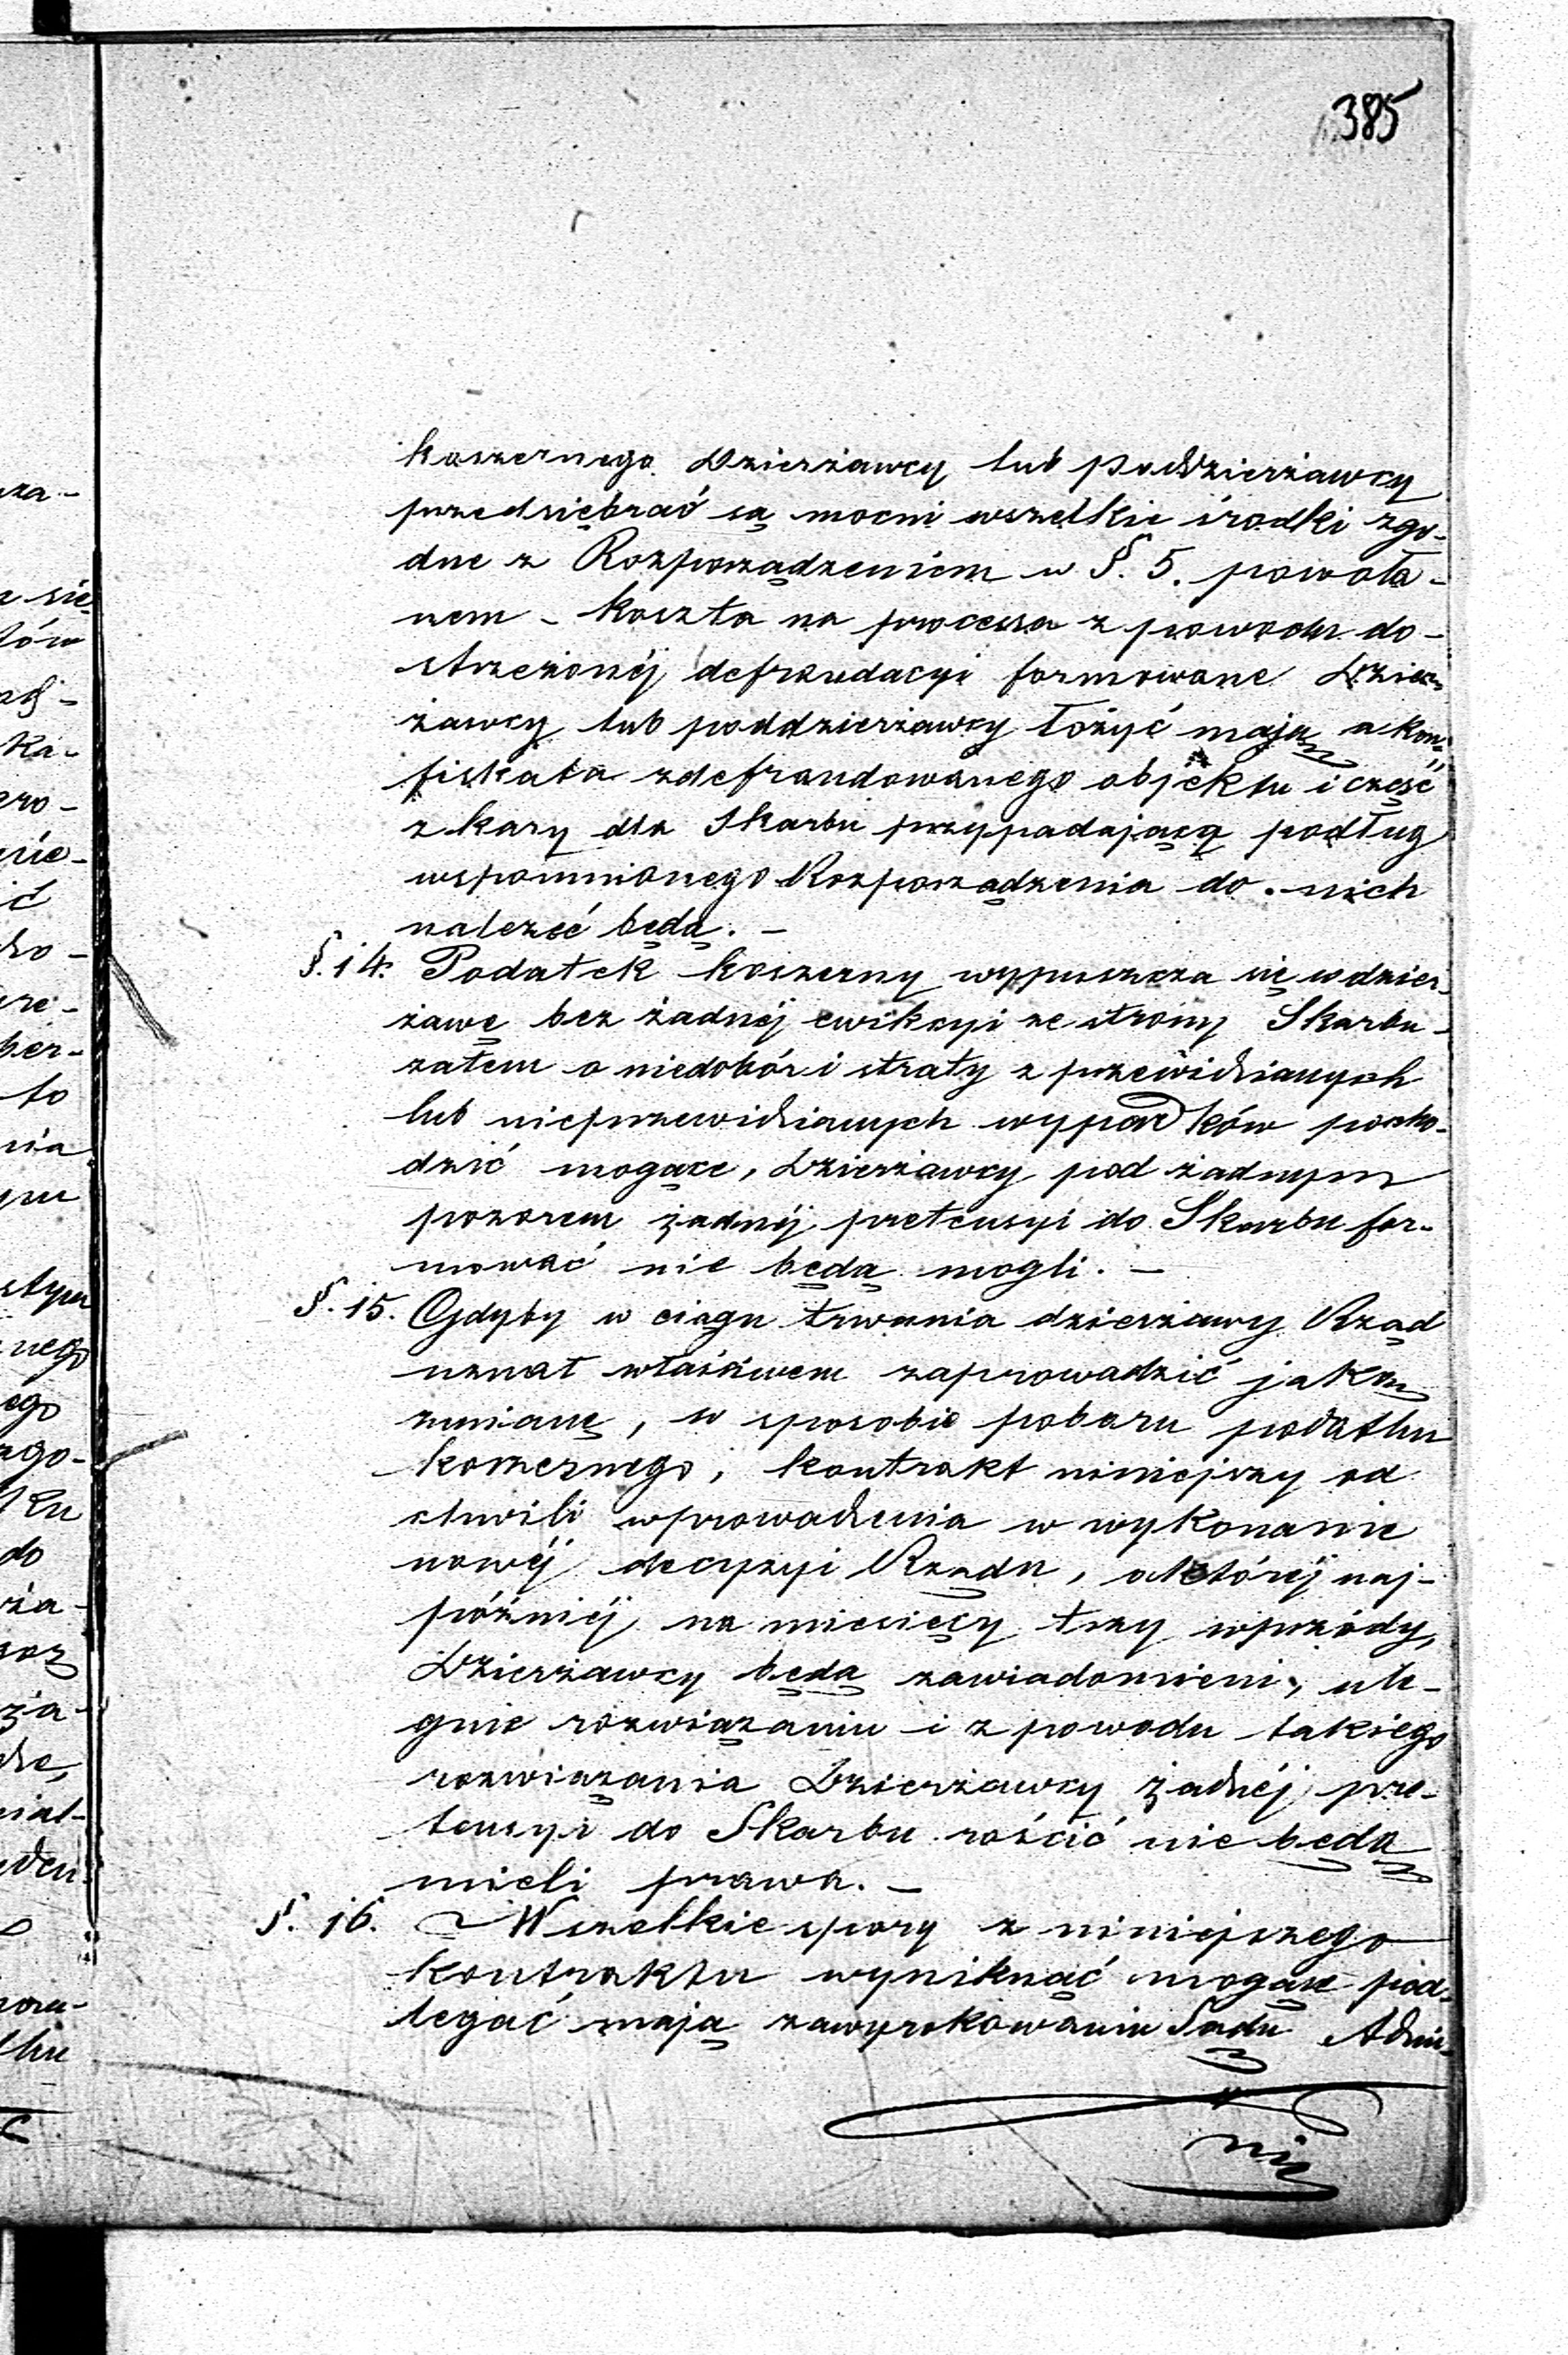 385
koszernego Dzierżawcy lub poddzierżawcy
przedsiębrać są mocni wszelkie środki zgo-
dne z Rozporządzeniem w §. 5. powoła-
nem - koszta na processa z powodu do-
strzeżonéj defraudacyi formowane Dzier-
żawcy lub poddzierżawcy łożyć mają a kon-
fiskata zdefraudowanego objektu i część
z kary dla Skarbu przypadającą podług
wspomnionego Rozporządzenia do nich
należeć będą. -
§. 14. Podatek koszerny wypuszcza się w dzier-
żawę bez żadnéj ewikcyi ze strony Skarbu -
zatem o niedobór i straty z przewidzianych
lub nieprzewidzianych wypadków pocho-
dzić mogące, Dzierżawcy pod żadnym
pozorem żadnéj pretensyi do Skarbu for-
mować nie będą mogli. -
§. 15. Gdyby w ciągu trwania dzierżawy Rząd
uznał właściwem zaprowadzić jaką
zmianę, w sposobie poboru podatku
koszernego, kontrakt niniejszy od
chwili wprowadzenia w wykonanie
nowéj decyzyi Rządu, o któréj naj-
późniéj na miesięcy trzy wprzódy,
Dzierżawcy będą zawiadomieni, ule-
gnie rozwiązaniu i z powodu takiego
rozwiązania Dzierżawcy żadnéj pre-
tensyi do Skarbu rościć nie będą
mieli prawa. -
§. 16. Wszelkie spory z niniejszego
kontraktu wyniknąć mogące pod-
legać mają zawyrokowaniu Sądu Admi-
ni
za-
się
ów
ka-
ro-
nie-
ić
ho-
re-
ber-
to
nia
nego
ego
ago-
ku
do
ża-